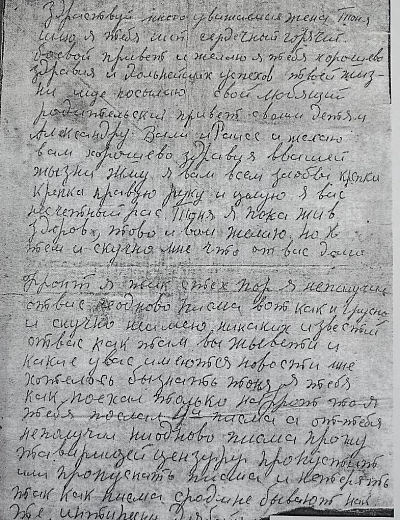 Здраствуй многоуважаимая жена Тоня
шлю я тебя свой сердечный горячий
боевой привет и желаю я тебя хорошево
здравя и дальнейших успехов твоей жиз-
ни ище посылаю свой любящий
родительский привет своим детям
Александру Вали и Раисе и желаю
вам хорошево здравуя ввашей
жызни жму я вам всем заобви крепки
крепка правую руку и цалую я вас
несчетный рас Тоня я пока жив
здоровх тово и вам желаю. но
тем и скучно мне что от вас
Фронт я так стех пор я неполучии
отвас ниодново писма вот как и грусно
и скучно неимею никаких известий
отвас как там вы жывети и
какие увас имеются новости мне
хотелось бызнать тоня я тебя
как поехал только на фронт то я
тебя послал писма а от тебя
неполучил ниодново писма прошу
товарищей цензуру пропустить
или пропускать писма и нетерять
так как писма сродине бывают